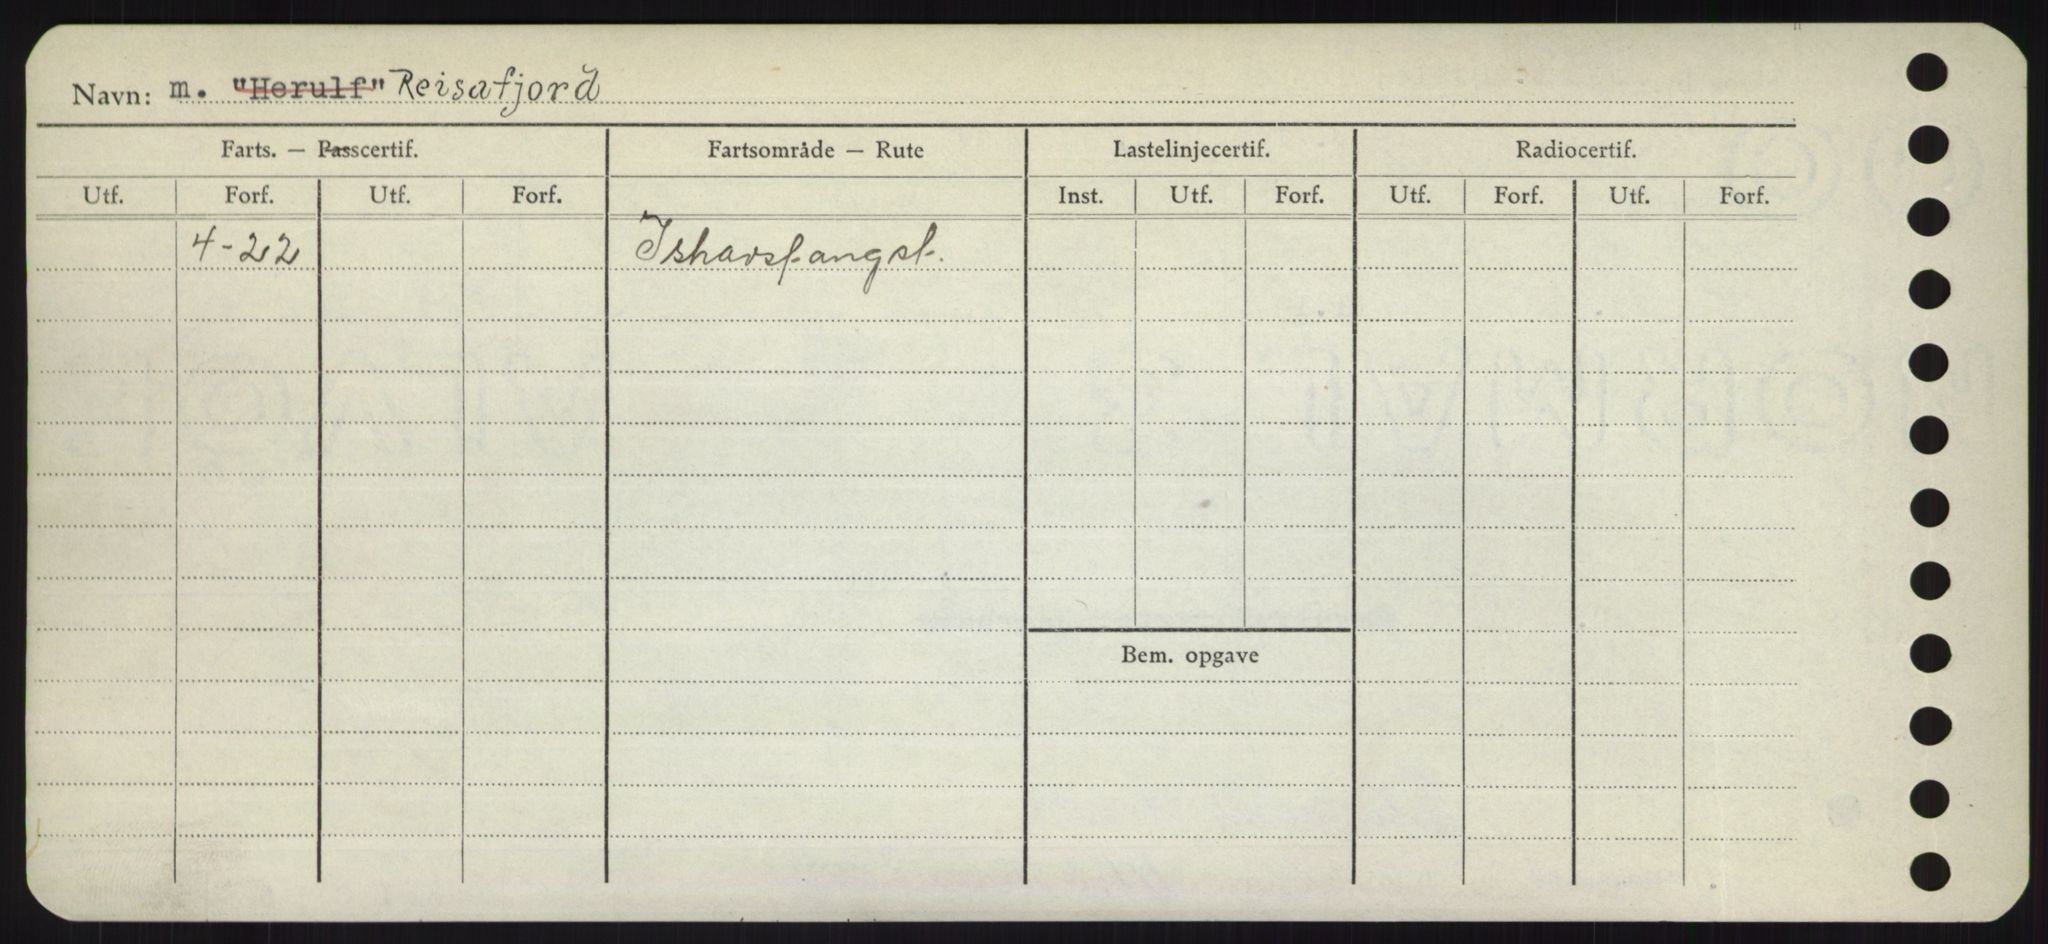 Navn: m. "Herulf" Reisafjord
Farts. — Passcertif. Fartsområde — Rute Lastelinjecertif. Radiocertif.
Utf. Forf. Utf. Forf. Inst. Utf. Forf. Utf. Forf. Utf. Forf.
4-22 Ishavsfangst.
Bem. opgave